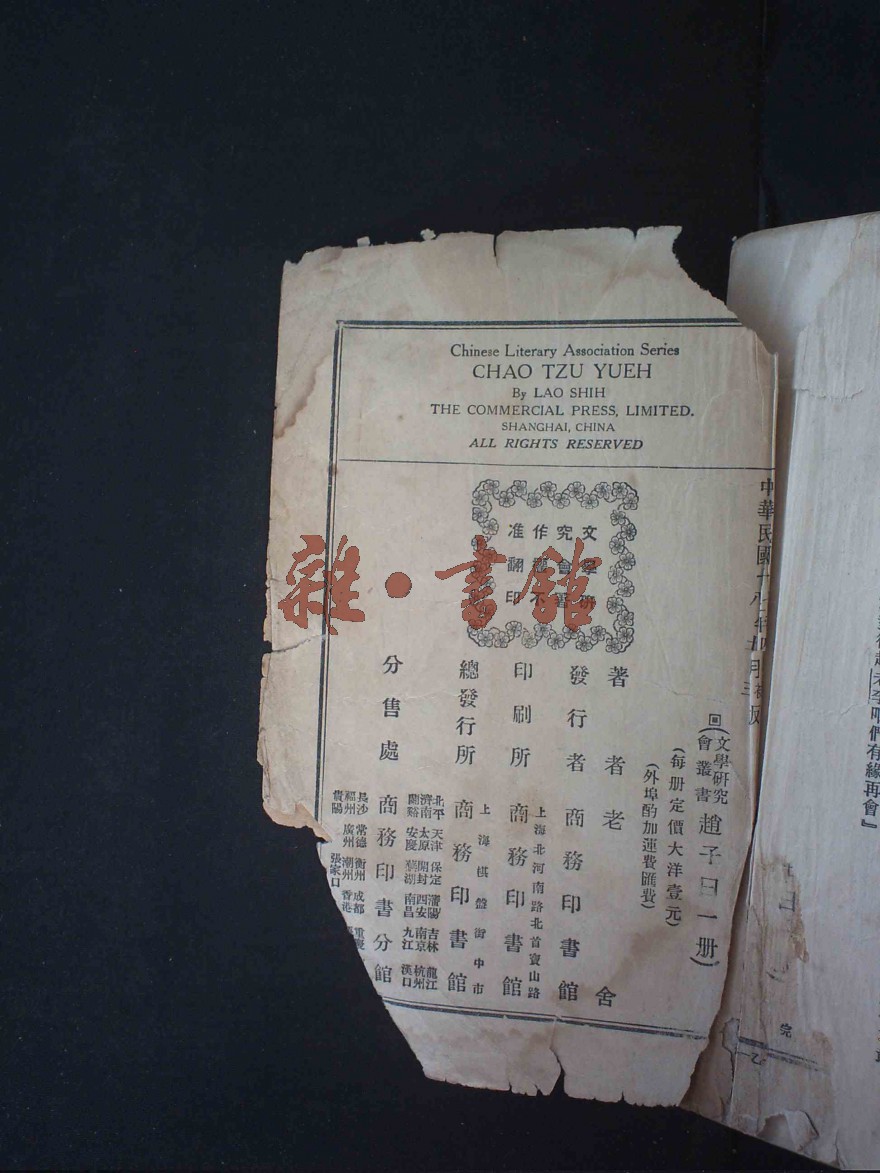 Chinese Literary Association Series
CHAO TZU YUEH
By LAO SHIH
THE COMMERCIAL PRESS, LIMITED.
SHANGHAI, CHINA
ALL RIGHTS RESERVED
中華民國十八年四月
文學研
究會著
作權不
准翻印
文學研究
會叢書
趙子曰一册
(每册定價大洋壹元)
(外埠酌加運費匯費)
著者 老舍
發行者 商務印書館
上海北河南路北首寶山路
印刷所 商務印書館
上海棋盤街中市
總發行所 商務印書館
分售處 商務印書分館
北平 天津 保定 瀋陽 吉林 龍江
濟南 太原 開封 西安 南京 杭州
蘭谿 安慶 蕪湖 南昌 九江 漢口
長沙 常德 衡州 成都 重慶
福州 廣州 潮州 香港
貴陽 張家口
雜·書館
老李咱們有緣再會』
完